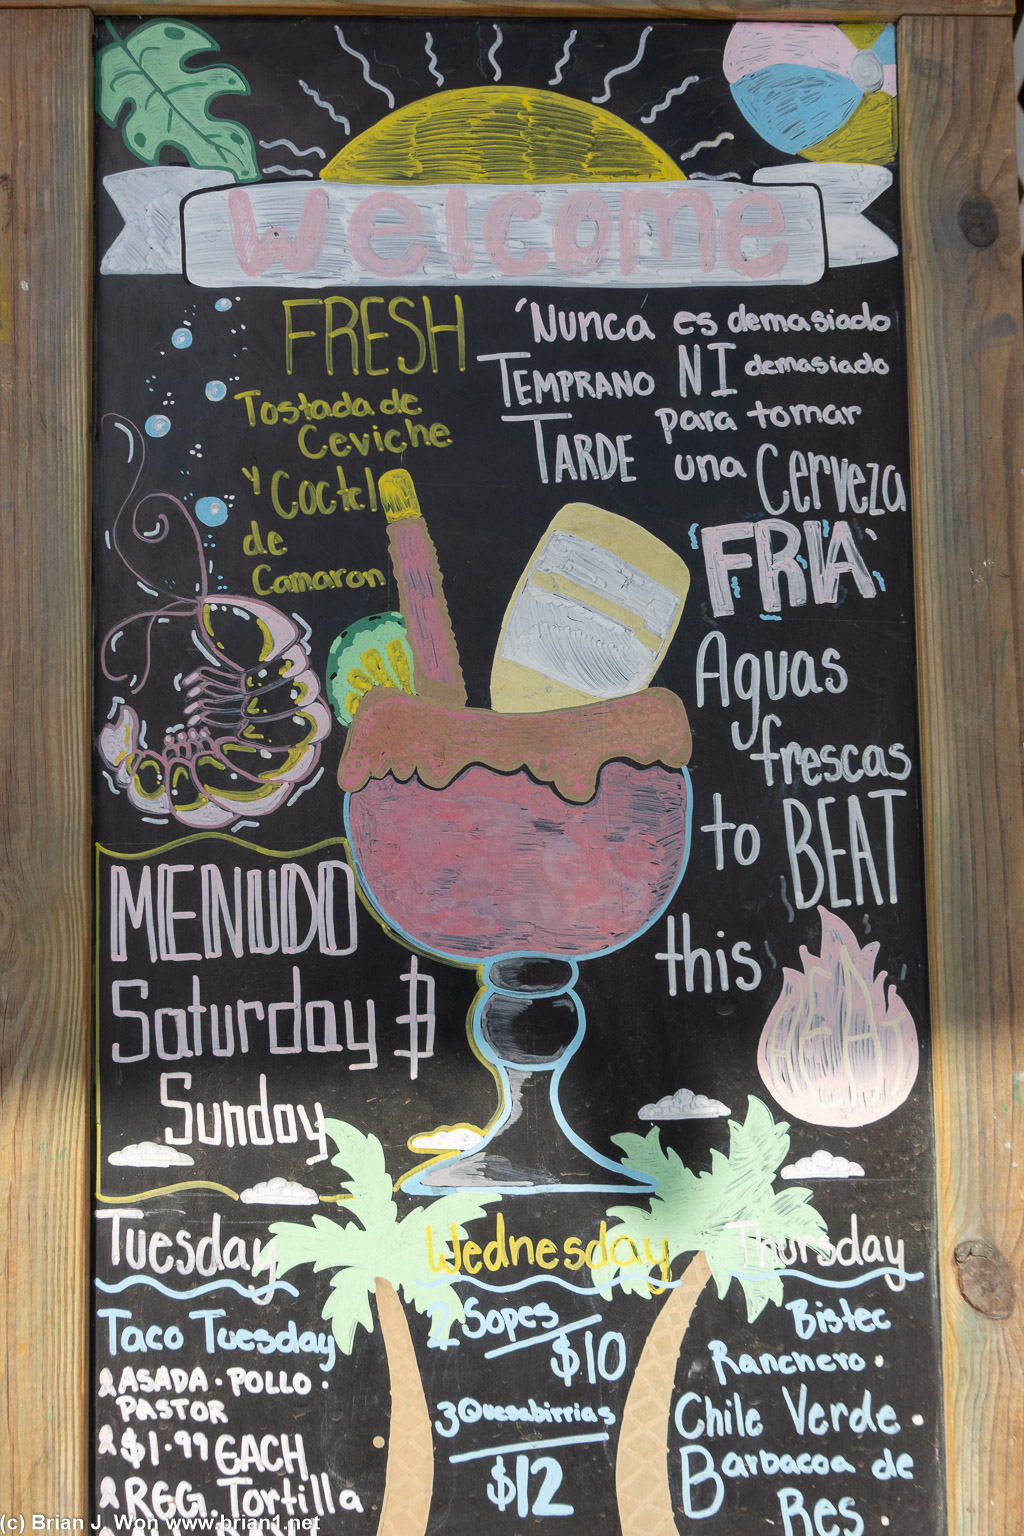 Welcome
FRESH
Tostada de
Ceviche
y Coctel
de
Camaron
'Nunca es demasiado
TEMPRANO NI demasiado
TARDE para tomar
una Cerveza
FRIA
Aguas
frescas
to BEAT
this HEAT
MENUDO
Saturday &
Sunday
Tuesday
Taco Tuesday
ASADA · POLLO ·
PASTOR
$1.99 EACH
REG. Tortilla
Wednesday
2 Sopes
$10
3 Quesabirrias
$12
Thursday
Bistec
Ranchero ·
Chile Verde ·
Barbacoa de
Res ·
(c) Brian J. Won www.brian1.net